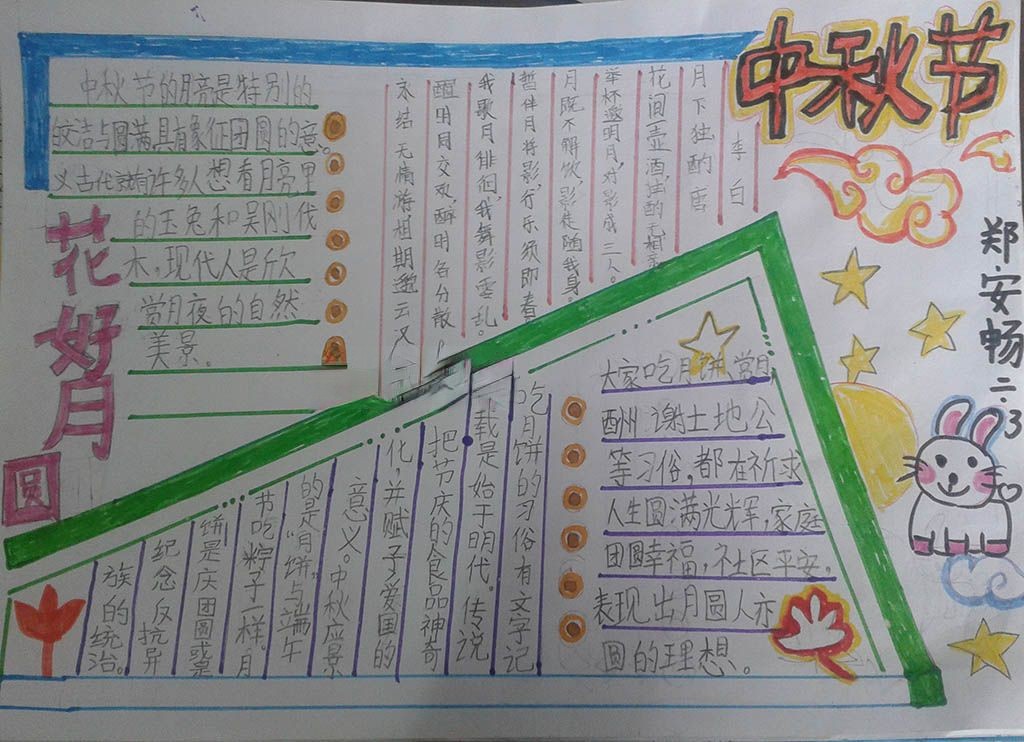 中秋节
郑安畅 二.3
花好月圆
中秋节的月亮是特别的
皎洁与圆满具有象征团圆的意
义古代就有许多人想看月亮里
的玉兔和吴刚伐
木,现代人是欣
赏月夜的自然
美景.
李白
月下独酌 唐
花间一壶酒,独酌无相亲
举杯邀明月,对影成三人。
月既不解饮,影徒随我身。
暂伴月将影,行乐须即春
我歌月徘徊,我舞影零乱。
醒时同交欢,醉时各分散
永结无情游相期邈云汉
大家吃月饼,赏月,
酬谢土地公
等习俗,都在祈求
人生圆满光辉,家庭
团圆幸福,社区平安,
表现出月圆人亦
圆的理想。
吃月饼的习俗有文字记
载是始于明代。传说
把节庆的食品神奇
化,并赋予爱国的
意义。中秋应景
的是“月饼”与端午
节吃粽子一样。月
饼是庆团圆或是
纪念反抗异
族的统治。